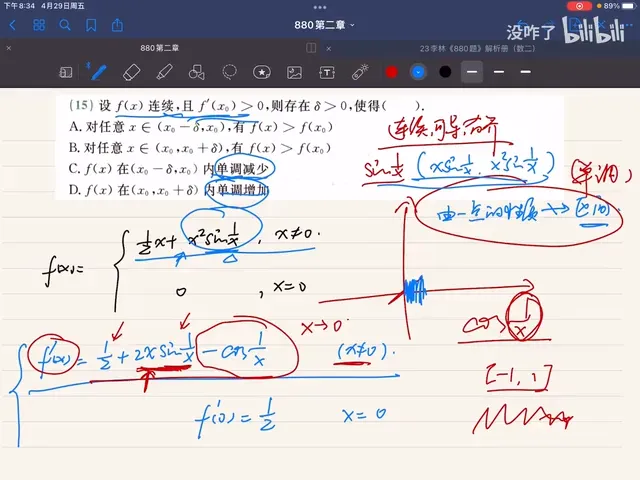 下午8:34 4月29日周五
89%
880 第二章
没咋了 bilibili
880 第二章
23李林《880题》解析册（数二）
(15) 设 f(x) 连续,且 f′(x₀)＞0,则存在 δ＞0,使得( ).
A. 对任意 x∈(x₀−δ,x₀),有 f(x)＞f(x₀)
B. 对任意 x∈(x₀,x₀+δ),有 f(x)＞f(x₀)
C. f(x) 在(x₀−δ,x₀) 内单调减少
D. f(x) 在(x₀,x₀+δ) 内单调增加
连续,可导,有界
sin 1/x (x sin 1/x, x² sin 1/x)
(单调)
由一点的性质 → 区间
f(x)= { 1/2 x + x² sin 1/x, x≠0.
0 , x=0
x→0
cos 1/x
f′(x) = 1/2 + 2x sin 1/x − cos 1/x (x≠0).
[-1, 1]
f′(0) = 1/2 x=0